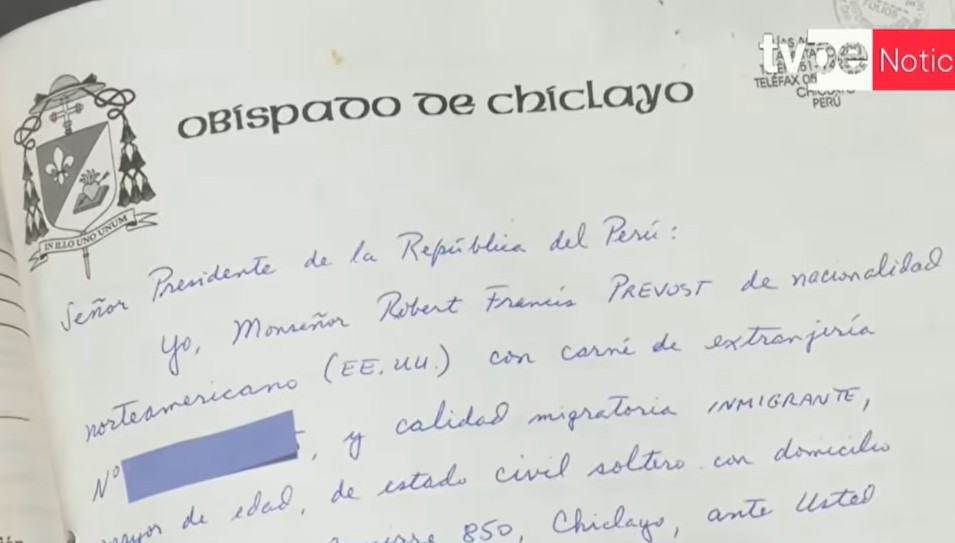 OBISPADO DE CHICLAYO
TELEFAX
PERÚ
tvpe Notic
IN ILLO UNO UNUM
Señor Presidente de la República del Perú:
Yo, Monseñor Robert Francis PREVOST de nacionalidad
norteamericano (EE.UU.) con carné de extranjería
Nº , y calidad migratoria INMIGRANTE,
de edad, de estado civil soltero con domicilio
850, Chiclayo, ante Usted